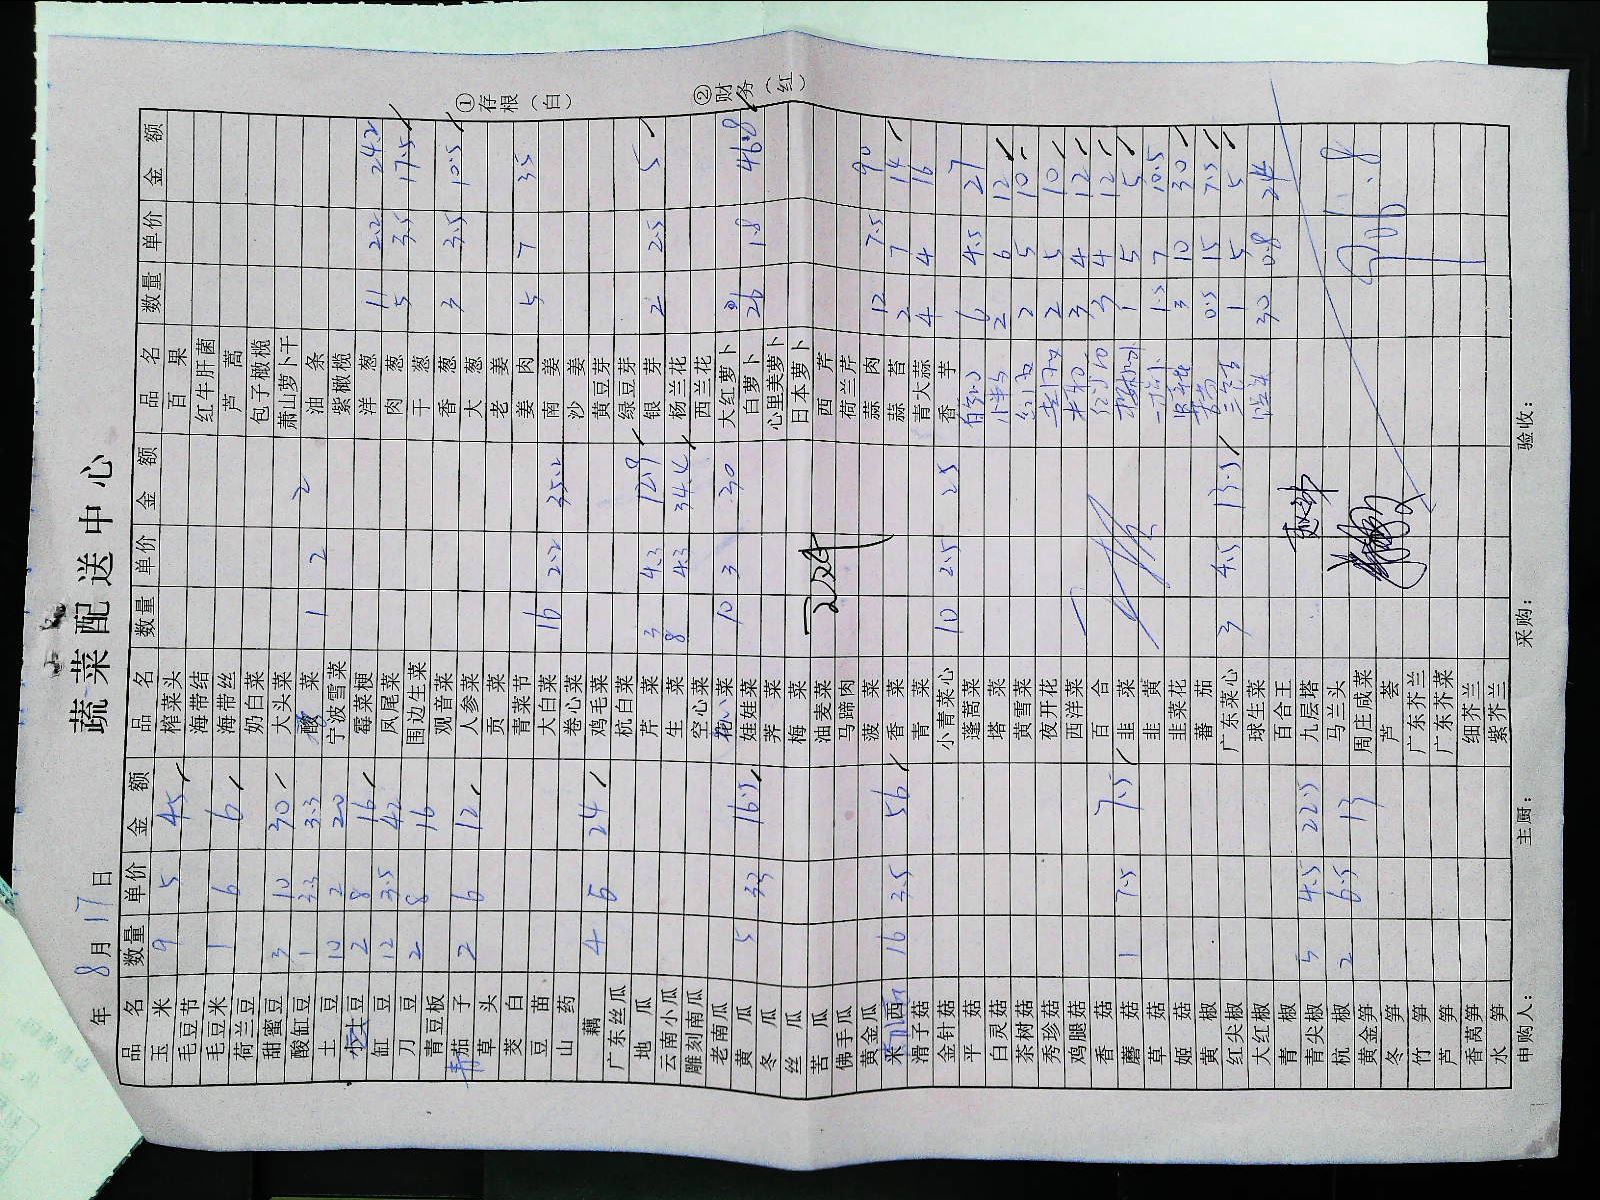 蔬菜配送中心
年 8月17日
①存根（白）
②财务（红）
品名 数量 单价 金额 品名 数量 单价 金额 品名 数量 单价 金额
玉米 9 5 45
毛豆节
毛豆米 1 6 6
荷兰豆
甜蜜豆 3 10 30
酸缸豆 1 3.3 3.3
土豆 10 2 20
豆 2 8 16
缸豆 12 3.5 42
刀豆 2 8 16
青豆板
茄子 2 6 12
草头
茭白
豆苗
山药
藕 4 6 24
广东丝瓜
地瓜
云南小瓜
雕刻南瓜
老南瓜
黄瓜 5 3.3 16.5
冬瓜
丝瓜
苦瓜
佛手瓜
黄金瓜
西 16 3.5 56
滑子菇
金针菇
平菇
白灵菇
茶树菇
秀珍菇
鸡腿菇
香菇
蘑菇 1 7.5 7.5
草菇
姬菇
黄椒
红尖椒
大红椒
青椒
青尖椒 5 4.5 22.5
杭椒 2 6.5 13
黄金笋
冬笋
竹笋
芦笋
香莴笋
水笋
榨菜头
海带结
海带丝
奶白菜
大头菜
酸菜 1 2 2
宁波雪菜
霉菜梗
凤尾菜
围边生菜
观音菜
人参菜
贡菜
青菜节
大白菜 16 2.2 35.2
卷心菜
鸡毛菜
杭白菜
芹菜 3 4.3 12.9
生菜 8 4.3 34.4
空心菜
花菜 10 3 30
娃娃菜
荠菜
梅菜
油麦菜
马蹄肉
菠菜
香菜
青菜
小青菜心 10 2.5 25
蓬蒿菜
塔菜
黄雪菜
夜开花
西洋菜
百合
韭菜
韭黄
韭菜花
蕃茄
广东菜心 3 4.5 13.5
球生菜
百合王
九层塔
马兰头
周庄咸菜
芦荟
广东芥兰
广东芥菜
细芥兰
紫芥兰
百果
红牛肝菌
芦蒿
包子橄榄
萧山萝卜干
油条
紫橄榄
洋葱 11 2.2 24.2
肉葱 5 3.5 17.5
干葱
香葱 3 3.5 10.5
大葱
老姜
姜肉 5 7 35
南姜
沙姜
黄豆芽
绿豆芽
银芽 2 2.5 5
杨兰花
西兰花
大红萝卜
白萝卜 26 1.8 46.8
心里美萝卜
日本萝卜
西芹
荷兰芹
蒜肉 12 7.5 90
蒜苔 2 7 14
青大蒜 4 4 16
香芋
6 4.5 27
2 6 12
2 5 10
2 5 10
3 4 12
3 4 12
1 5 5
1.5 7 10.5
3 10 30
0.5 15 7.5
1 5 5
30 0.8 24
申购人： 主厨： 采购： 验收：